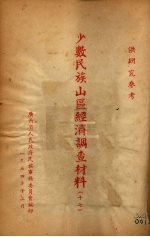 供研究參考
少數民族山區經濟調查材料
(十七)
廣西省人民政府民族事務委員會編印
一九五四年十二月